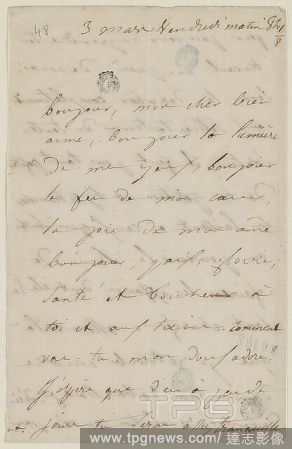 48
3 mars Vendredi matin 8h
Bonjour, mon cher bien
aimé, bonjour la lumière
de mes yeux, bonjour
le feu de mon cœur,
la joie de mon âme
bonjour, paix, gloire,
santé et bonheur à
toi et aux tiens. comment
vas-tu mon doux adoré?
J'espère que
faire tu seras assez tranquille
TPG
www.tpgnews.com/達志影像